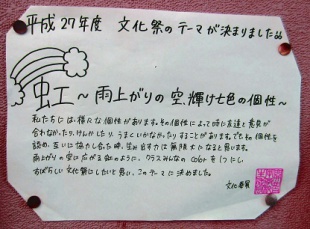 平成27年度 文化祭のテーマが決まりました
虹 〜雨上がりの空、輝け七色の個性〜
私たちには様々な個性があります。その個性によって時に友達と意見が
合わなかったり、けんかしたり、うまくいかなかったりすることがあります。でもその個性を
認め、互いに協力し合た時、生み出す力は無限大になると思います。
雨上がりの空に広がる虹のように、クラスみんなの colorを1つにし
すばらしい文化祭にしたいと思い、このテーマに決めました。
文化委員